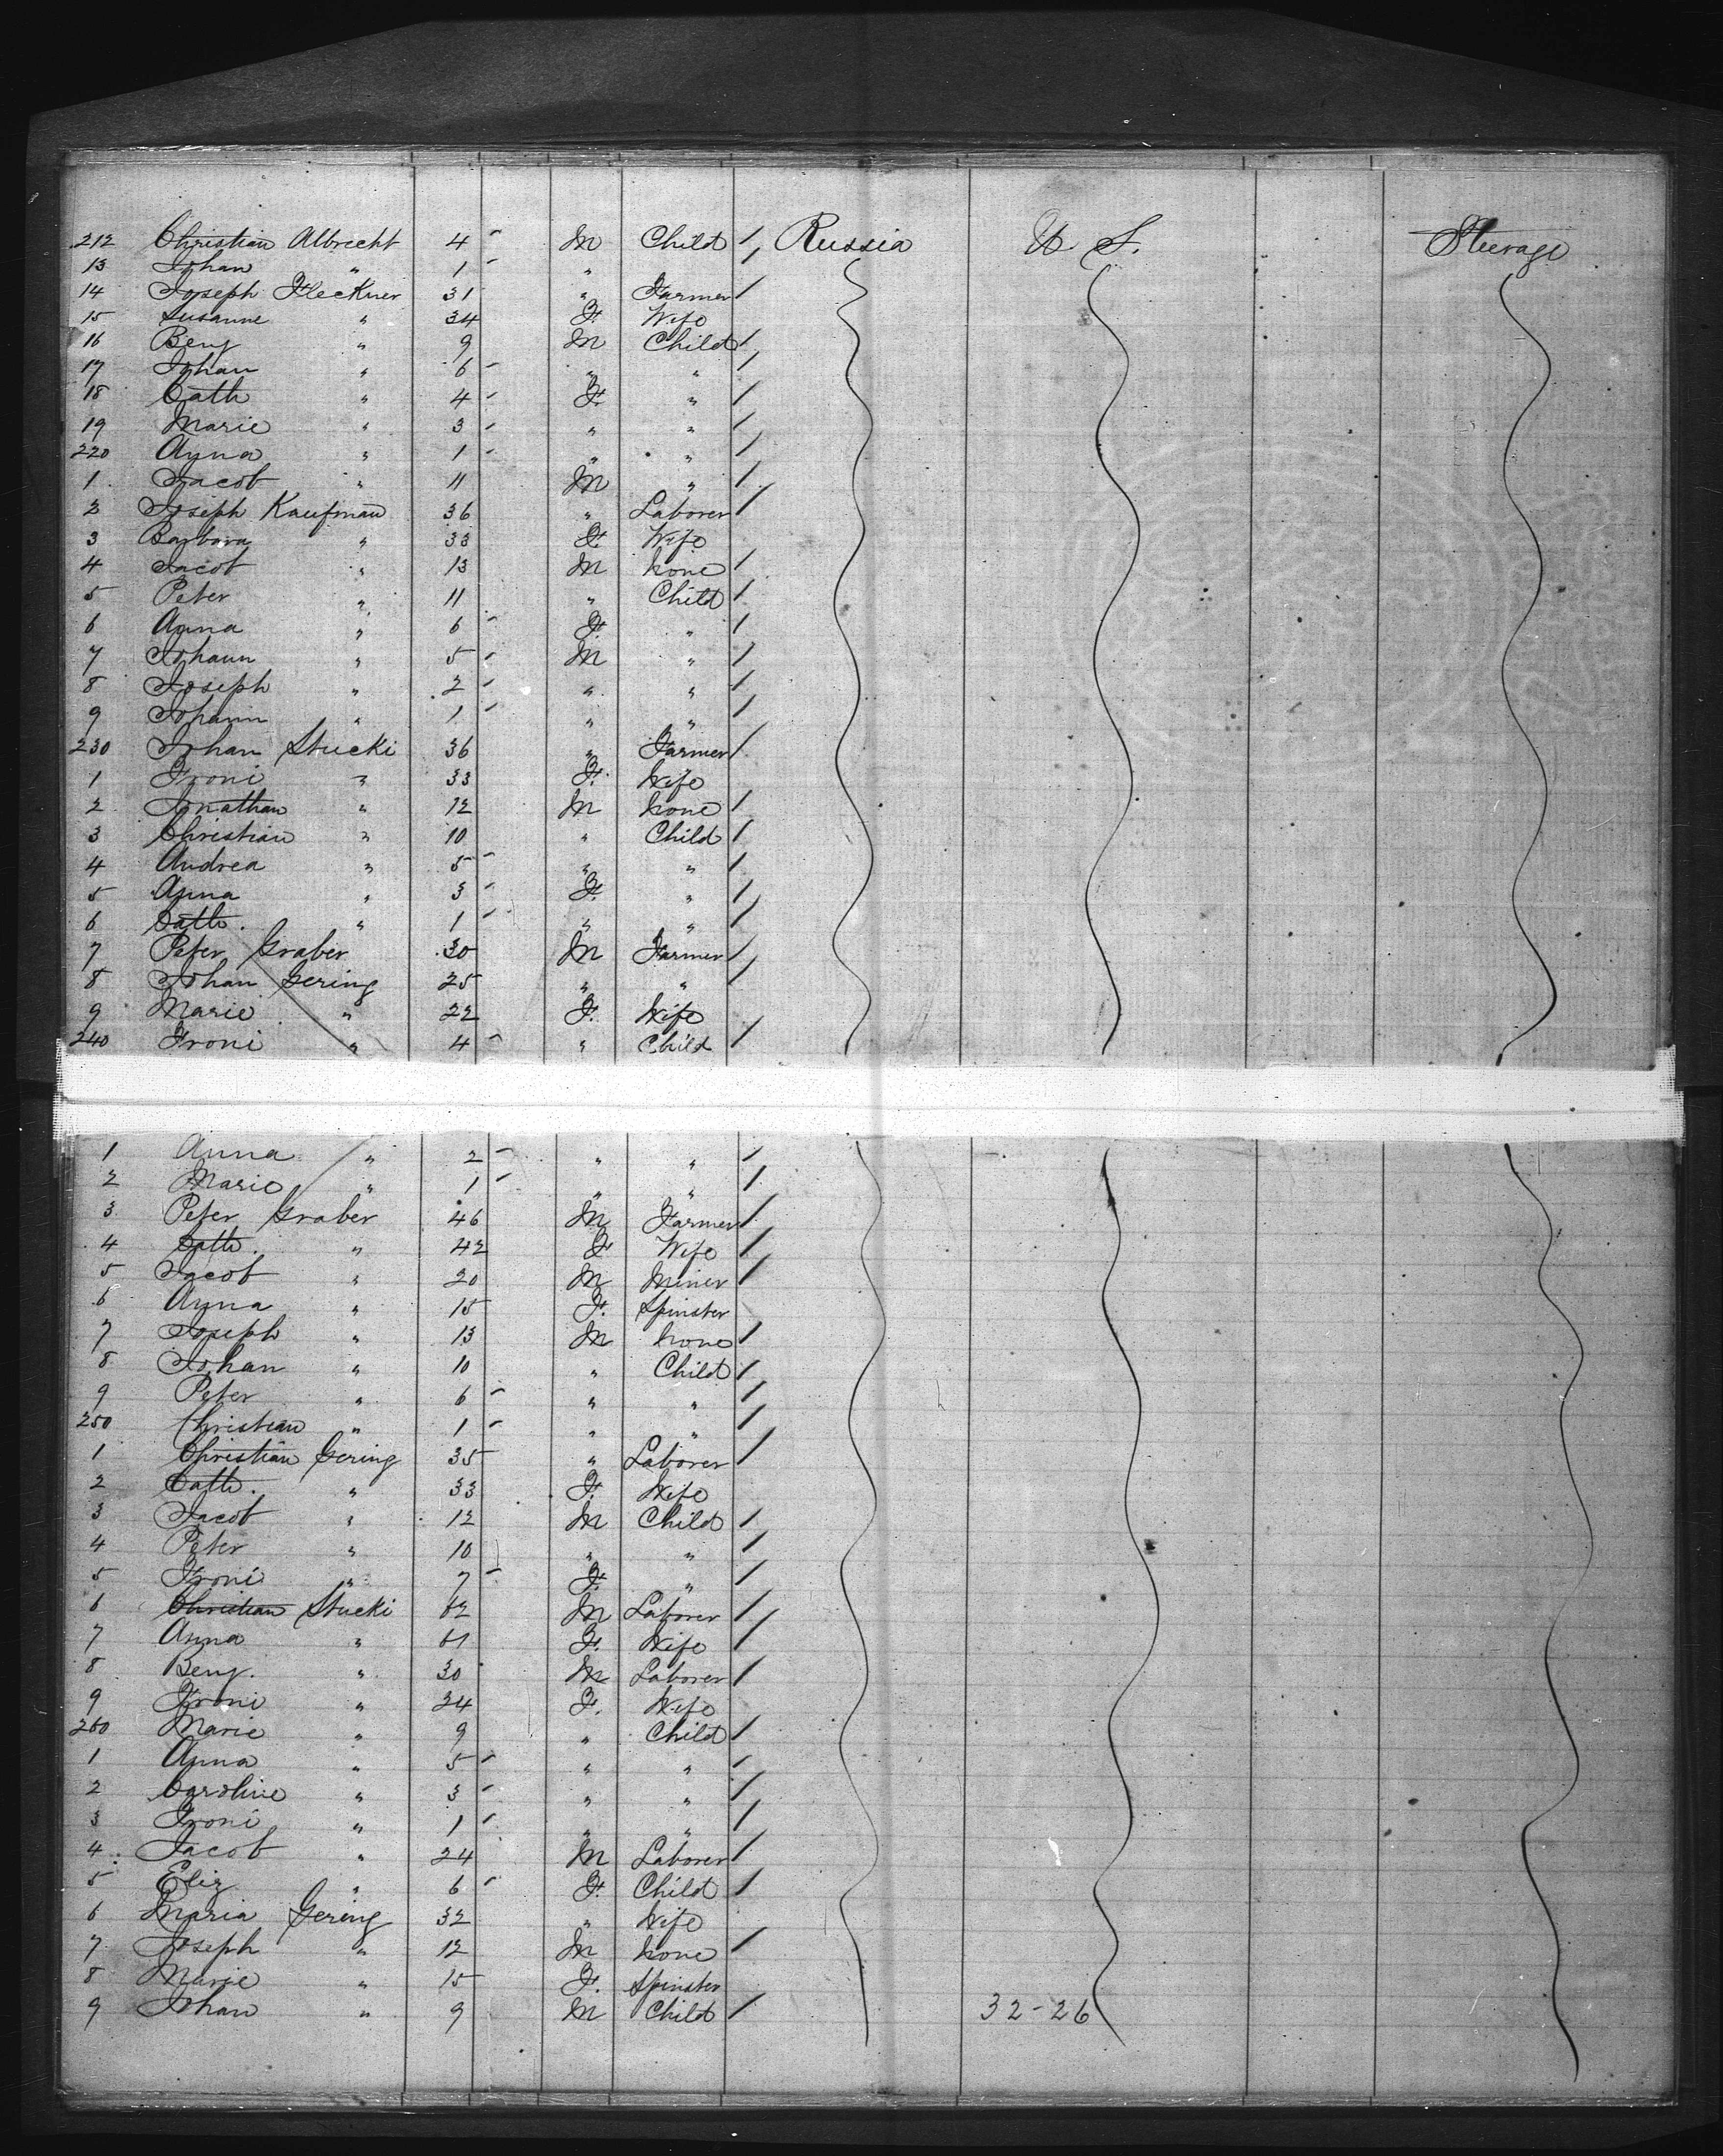 212 Christian Albrecht 4 - M Child / Russia U. S. Steerage
13 Johan " 1 - " /
14 Joseph Fleckner 31 " Farmer /
15 Susanne " 34 F. Wife
16 Benj " 9 M Child /
17 Johan " 6 - " " /
18 Cath " 4 - F. " /
19 Marie " 3 - " " /
220 Anna " 1 - " " /
1 Jacob " 11 M " /
2 Joseph Kaufman 36 " Laborer /
3 Barbara " 33 F. Wife
4 Jacob " 13 M none /
5 Peter " 11 " Child /
6 Anna " 6 - F. " /
7 Johann " 5 - M " /
8 Joseph " 2 - " " /
9 Johann " 1 - " " /
230 Johan Stucki 36 " Farmer /
1 Froni " 33 F. Wife
2 Jonathan " 12 M none /
3 Christian " 10 " Child /
4 Andrea " 5 - " " /
5 Anna " 3 - F. " /
6 Cath. " 1 - " " /
7 Peter Graber 30 M Farmer /
8 Johan Gering 25 " " /
9 Marie " 22 F. Wife
240 Froni " 4 - " Child /
1 Anna " 2 - " " /
2 Marie " 1 - " " /
3 Peter Graber 46 M Farmer /
4 Cath. " 42 F Wife /
5 Jacob " 20 M Miner /
6 Anna " 15 F. Spinster
7 Joseph " 13 M none /
8 Johan " 10 " Child /
9 Peter " 6 - " " /
250 Christian " 1 - " " /
1 Christian Gering 35 " Laborer /
2 Cath. " 33 F. Wife
3 Jacob " 12 M Child /
4 Peter " 10 " " /
5 Froni " 7 - F. " /
6 Christian Stucki 62 M Laborer /
7 Anna " 61 F. Wife /
8 Benj. " 30 M Laborer /
9 Froni " 24 F. Wife
260 Marie " 9 " Child /
1 Anna " 5 - " " /
2 Caroline " 3 - " " /
3 Froni " 1 - " " /
4 Jacob " 24 M Laborer /
5 Eliz " 6 - F. Child /
6 Maria Gering 32 " Wife
7 Joseph " 12 M none /
8 Marie " 15 F. Spinster
9 Johan " 9 M Child / 32-26